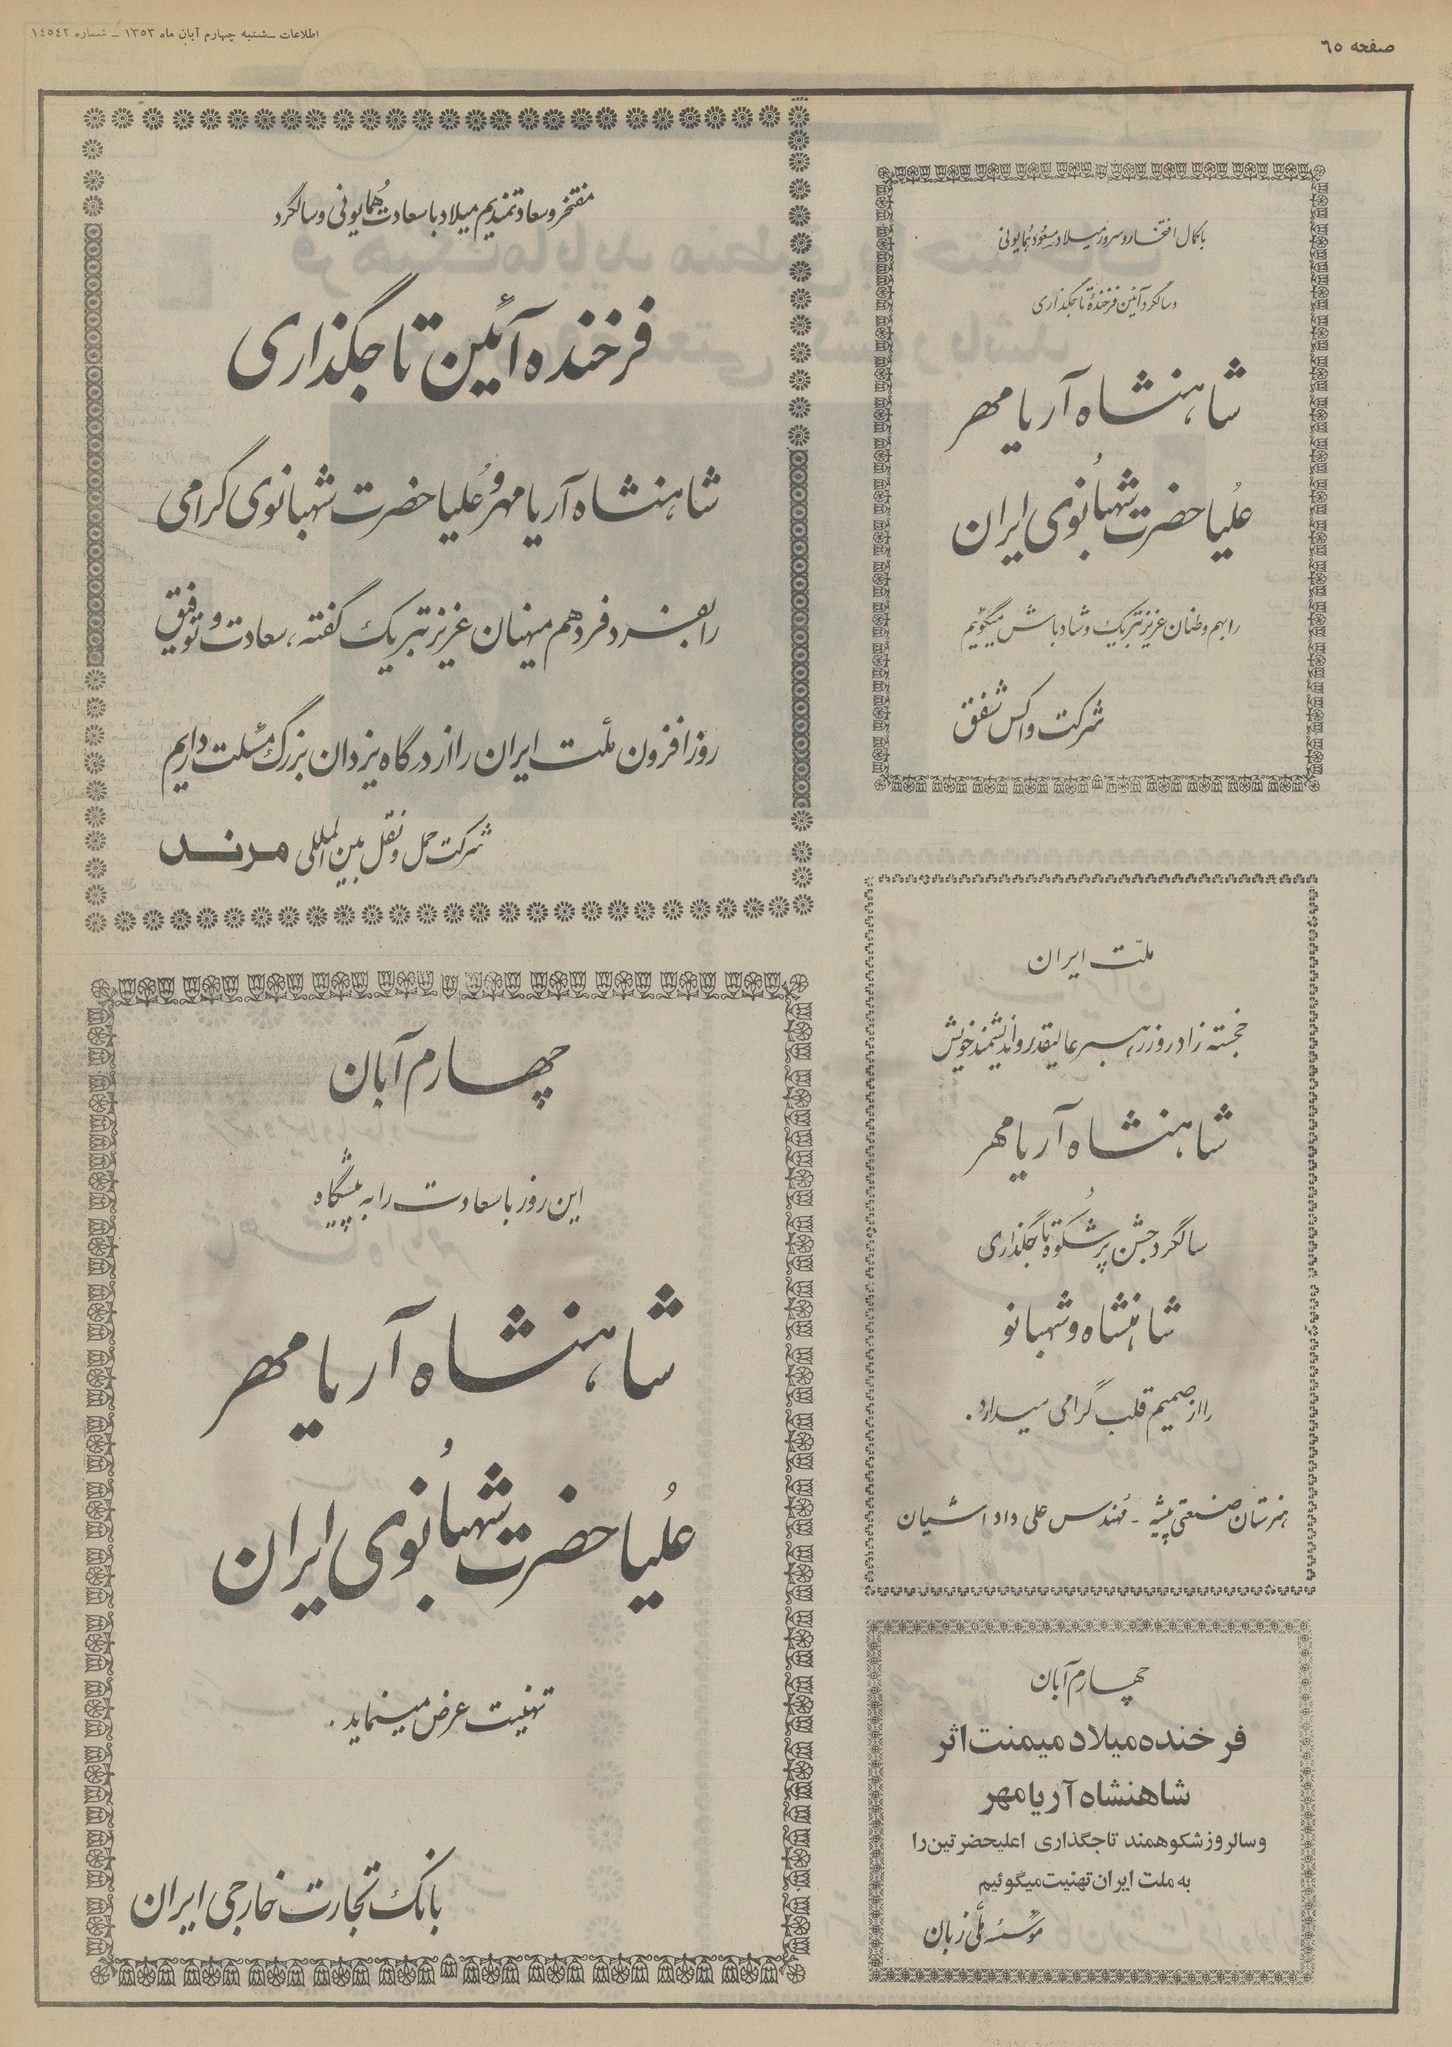 صفحه ٦٥
اطلاعات ـ شنبه چهارم آبان ماه ١٣٥٣ ـ شماره ١٤٥٤٢
باکمال افتخار و سرور میلاد مسعود همایونی
و سالگرد آئین فرخندهٔ تاجگذاری
شاهنشاه آریامهر
و
علیاحضرت شهبانوی ایران
را بهم وطنان عزیز تبریک و شادباش میگوئیم
شرکت واکس شفق
مفتخر و سعادتمندیم میلاد باسعادت همایونی و سالگرد
فرخنده آئین تاجگذاری
شاهنشاه آریامهر و علیاحضرت شهبانوی گرامی
را بفرد فرد هم میهنان عزیز تبریک گفته، سعادت و توفیق
روزافزون ملت ایران را از درگاه یزدان بزرگ مسئلت داریم
شرکت حمل و نقل بین المللی مرند
ملت ایران
خجسته زادروز رهبر عالیقدر و اندیشمند خویش
شاهنشاه آریامهر
و
سالگرد جشن پرشکوه تاجگذاری
شاهنشاه و شهبانو
را از صمیم قلب گرامی میدارد.
هنرستان صنعتی پیشه - مهندس علی داد اشیان
چهارم آبان
این روز باسعادت را به پیشگاه
شاهنشاه آریامهر
و
علیاحضرت شهبانوی ایران
تهنیت عرض مینماید.
بانک تجارت خارجی ایران
چهارم آبان
فرخنده میلاد میمنت اثر
شاهنشاه آریامهر
وسالروز شکوهمند تاجگذاری اعلیحضرتین را
به ملت ایران تهنیت میگوئیم
موسسه ملی زبان